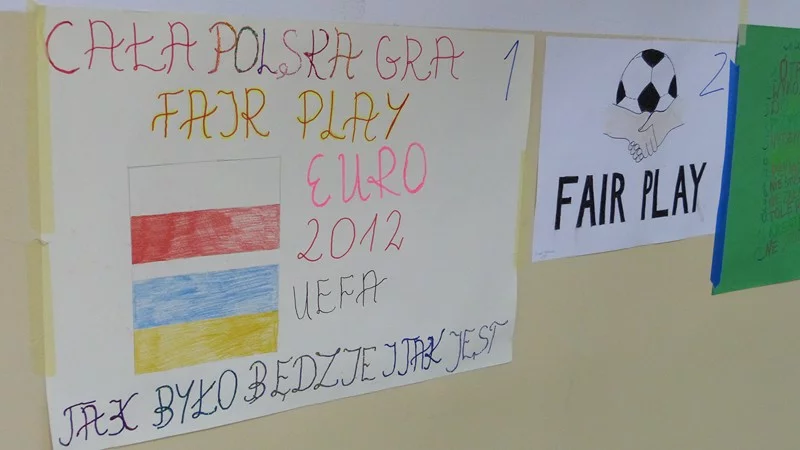 CAŁA POLSKA GRA
1
FAIR PLAY
EURO
2012
UEFA
JAK BYŁO BĘDZIE I TAK JEST
2
FAIR PLAY